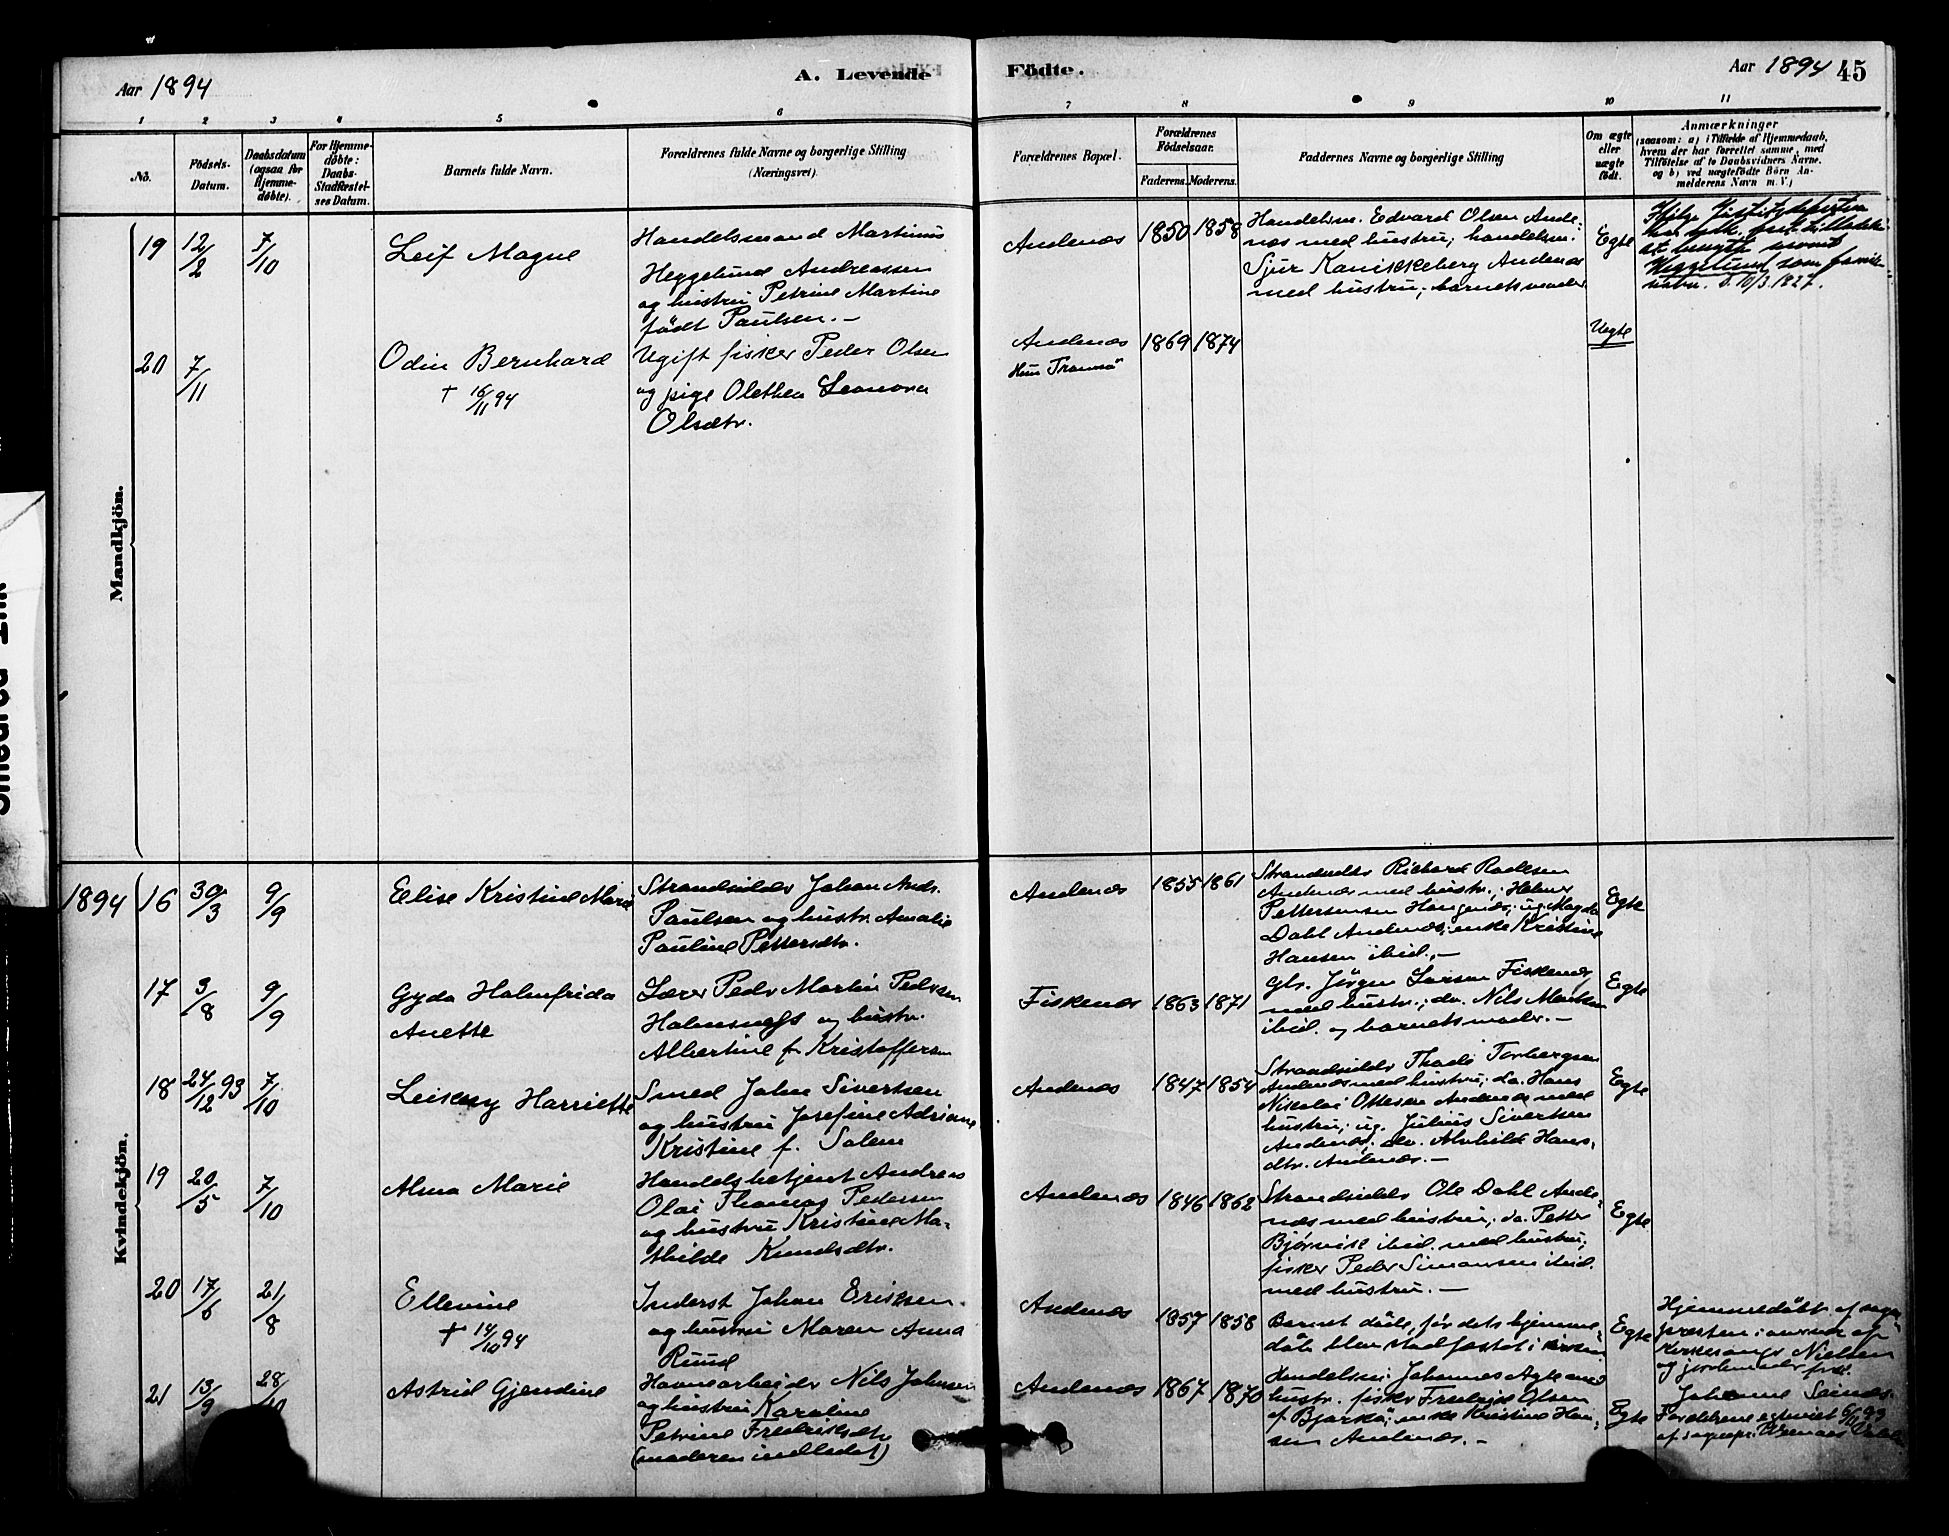 Aar 1894
A. Levende
Fødte.
Aar 1894 45
1 2 3 4 5 6 7 8 9 10 11
No.
Fødsels-
Datum.
Daabsdatum
(ogsaa for
Hjemme-
døbte).
For Hjemme-
døbte:
Daabs-
Stadfæstel-
ses Datum.
Barnets fulde Navn.
Forældrenes fulde Navne og borgerlige Stilling
(Næringsvei)
Forældrenes Bopæl.
Forældrenes
Fødselsaar.
Faderens.
Moderens.
Faddernes Navne og borgerlige Stilling
Om ægte
eller
uægte
født.
Anmærkninger
(saasom: a) i Tilfælde af Hjemmedaab,
hvem der har forrettet samme, med
Tilføielse af to Daabsvidners Navne.
og b) ved uægtefødte Børn An-
melderens Navn m. V.)
Mandkjön.
19 12/2 7/10
Leif Magne
Handelsmand Martinus
Heggelund Andreassen
og hustru Petrine Martine
født Paulsen. —
Andenæs
1850 1858
Handelsm. Edvard Olsen Ande-
næs med hustru; handelsm.
Sjur Kanikkeberg Andenæs
med hustru; barnets moder
Egte
Heggelund som familie-
navn. 10/3 1927.
20 7/11
Odin Bernhard
† 16/11 94
Ugift fisker Peder Olsen
og pige Olethea Leonora
Olsdtr.
Andenæs
Hun Tromsö
1869 1874
Uegte
Kvindekjön.
1894 16 30/3 9/9
Elise Kristine Marie
Strandsidder Johan Andr.
Paulsen og hustr. Amalie
Pauline Pettersdtr.
Andenæs
1855 1861
Richard
Andenæs med hustr.;
Pettersen ug. Magda
Dahl Andenæs; enke Kristine
Hansen ibid. —
Egte
17 3/8 9/9
Gyda Holmfrida
Anette
Lærer Pedr Martin Pedrsen
og hustr.
Albertine f. Kristoffersen
Fiskenæs
1863 1871
Jörgen Larsen Fiskenæs
med hustr.; do. Nils
ibid. og barnets moder. —
Egte
18 24/12 93 7/10
Leikny Harriette
Smed Johan Sivertsen
og hustru Josefine Adriane
Kristine f. Salem
Andenæs
1847 1854
Torbergsen
Andenæs med hustru; do. Hans
Nikolai Ottesen Andenæs med
hustru; ug. Julius Sivertsen
Andenæs; do. Alvhilde Hans-
dtr. Andenæs. —
Egte
19 20/5 7/10
Alma Marie
Handelsbetjent Andreas
Olai Thomas Pedersen
og hustru Kristine Ma-
thilde Knudsdtr.
Andenæs
1846 1862
Strandsidder Ole Dahl Ande-
næs med hustru; do. Petter
Bjørnvik ibid. med hustru;
fisker Peder Simonsen ibid.
med hustru. —
Egte
20 17/6 21/8
Ellevine
† 14/10 94
Inderst Johan Eriksen
og hustru Maren Anna
Ruud
Andenæs
1857 1858
Barnet døde, før dets hjemme-
dåb blev stadfæstet i kirken
Egte
Hjemmedöbt af sogne-
præsten i nærvær af
Nielsen
og jordemoder
Johanne
21 13/9 28/10
Astrid Gjendine
Havnearbeider Nils Johnsen
og hustru Karoline
Petrine Fredriksdtr
(moderen indledet)
Andenæs
1867 1870
Handelsm. Johannes
hustr. fisker Fredrik Olsen
af Bjarkö; enke Kristine Han-
sen Andenæs. —
Egte
Forældrene